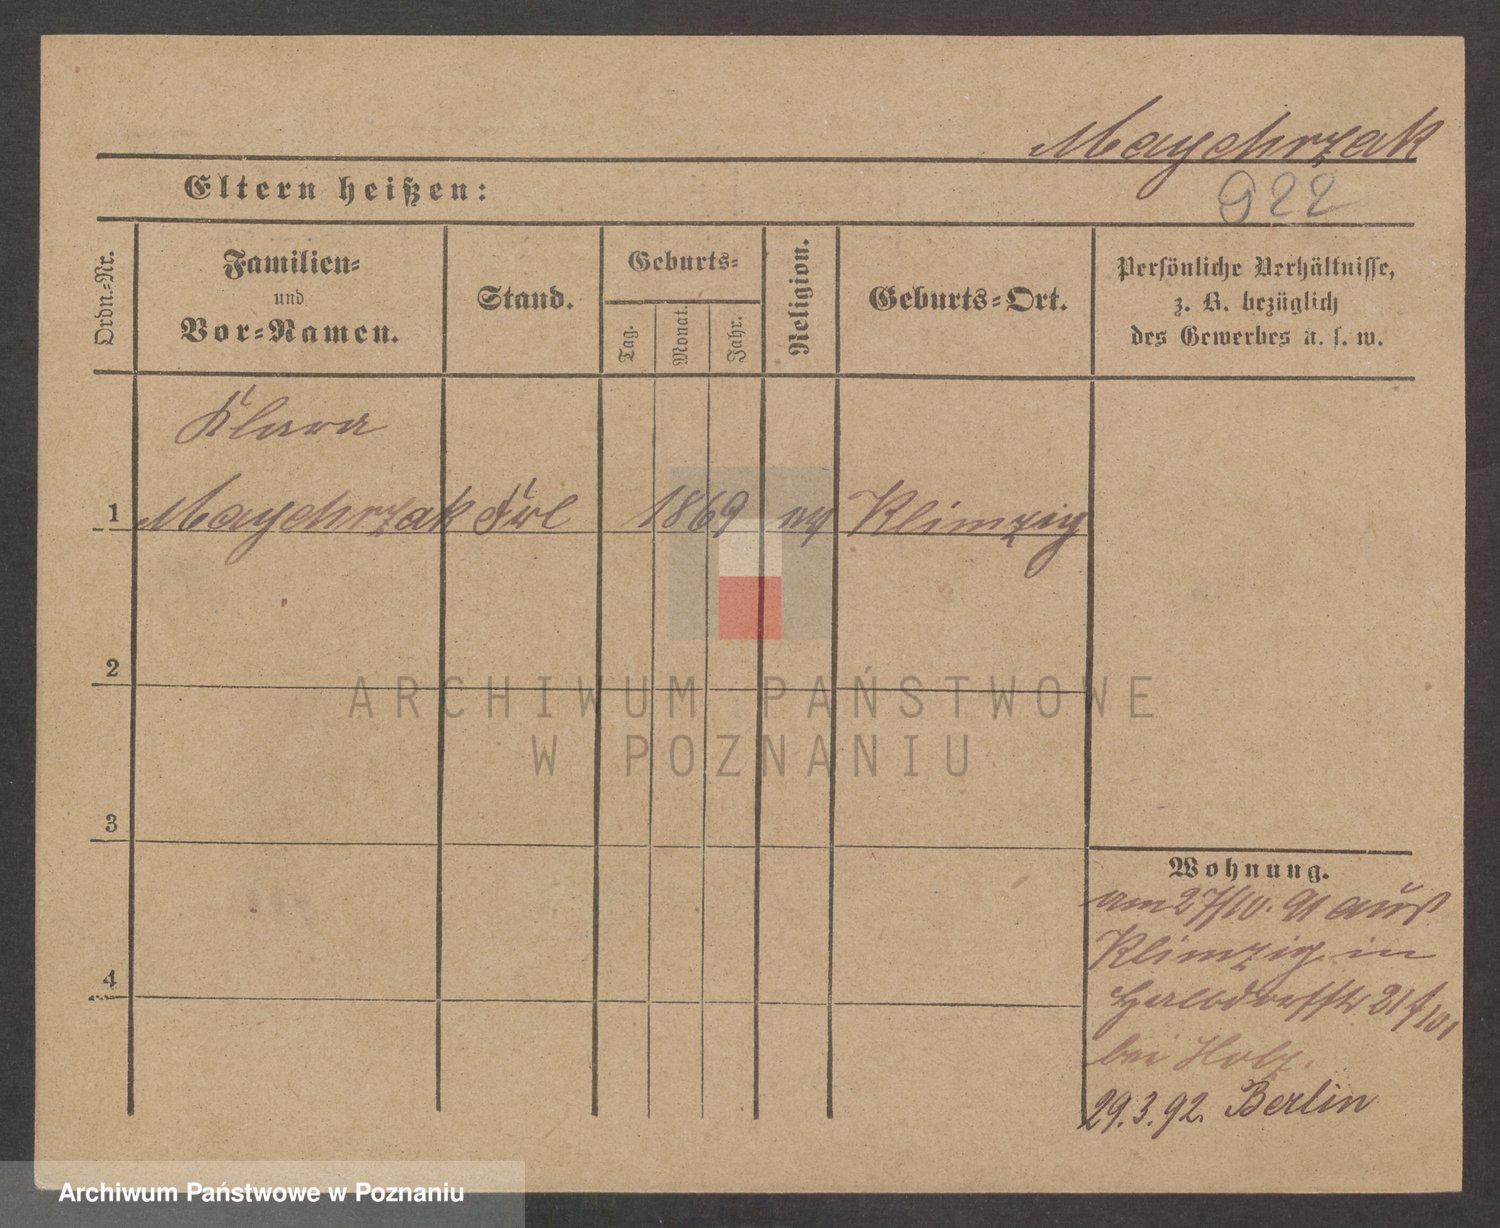 Maychrzak
Eltern heißen:
922
Ordn.-Nr.
Familien-
und
Vor-Namen.
Stand.
Geburts-
Tag.
Monat.
Jahr.
Religion.
Geburts-Ort.
Persönliche Verhältnisse,
z. B. bezüglich
des Gewerbes u. s. w.
Klara
1 Maychrzak Frl 1869 Klimzig
2
ARCHIWUM PAŃSTWOWE
W POZNANIU
3
Wohnung.
am 27/10. 91 aus
Klimzig in
4
Halbdorfstr
bei Holz.
29.3.92. Berlin
Archiwum Państwowe w Poznaniu